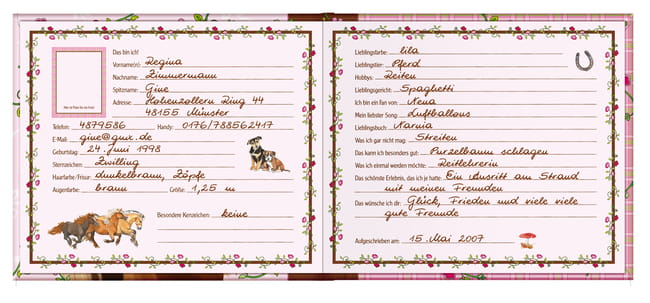 Das bin ich!
Vorname(n): Regina
Nachname: Zimmermann
Spitzname: Gine
Adresse Hohenzollern Ring 44
48155 Münster
Telefon: 4879586 Handy: 0176/788562417
E-Mail: gine@gmx.de
Geburtstag: 24. Juni 1998
Sternzeichen: Zwilling
Haarfarbe/Frisur: dunkelbraun, Zöpfe
Augenfarbe: braun Größe: 1,25 m
Besondere Kennzeichen: keine
Lieblingsfarbe: lila
Lieblingstier: Pferd
Hobbys: Reiten
Lieblingsgericht: Spaghetti
Ich bin ein Fan von: Nena
Mein liebster Song: Luftballons
Lieblingsbuch: Narnia
Was ich gar nicht mag: Streiten
Das kann ich besonders gut: Purzelbaum schlagen
Was ich einmal werden möchte: Reitlehrerin
Das schönste Erlebnis, das ich je hatte: Ein Ausritt am Strand
mit meinen Freunden
Das wünsche ich dir: Glück, Frieden und viele viele
gute Freunde
Aufgeschrieben am: 15. Mai 2007